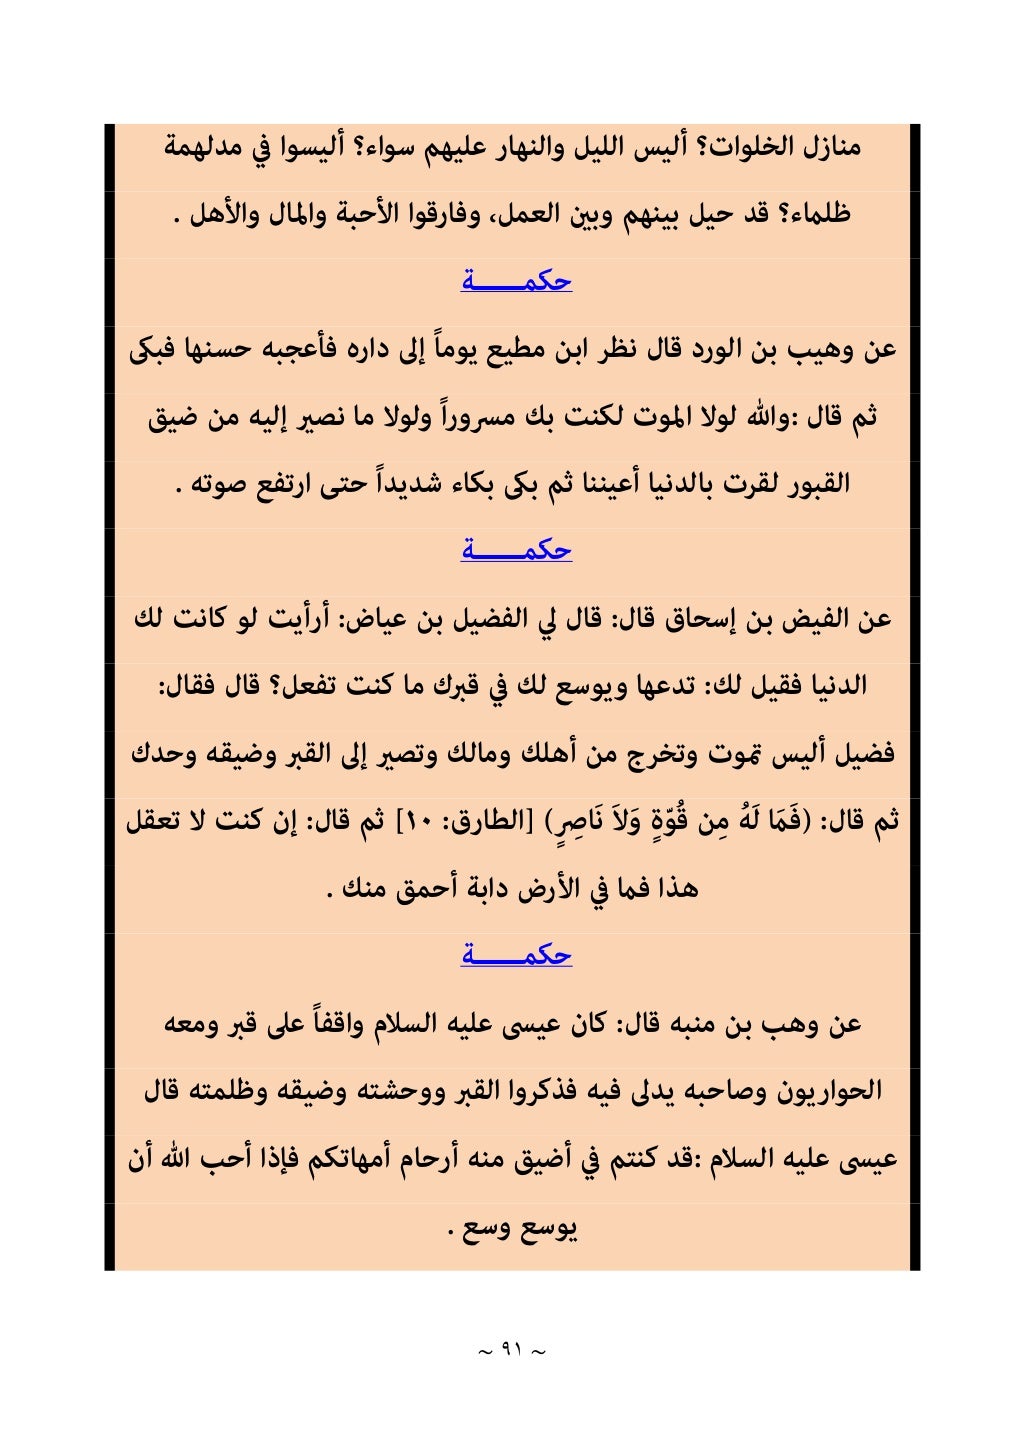 منازل الخلوات؟ أليس الليل والنهار عليهم سواء؟ أليسوا في مدلهمة
ظلماء؟ قد حيل بينهم وبين العمل، وفارقوا الأحبة والمال والأهل .
حكمـــــــة
عن وهيب بن الورد قال نظر ابن مطيع يوماً إلى داره فأعجبه حسنها فبكى
ثم قال :والله لولا الموت لكنت بك مسروراً ولولا ما نصير إليه من ضيق
القبور لقرت بالدنيا أعيننا ثم بكى بكاء شديداً حتى ارتفع صوته .
حكمـــــــة
عن الفيض بن إسحاق قال: قال لي الفضيل بن عياض: أرأيت لو كانت لك
الدنيا فقيل لك: تدعها ويوسع لك في قبرك ما كنت تفعل؟ قال فقال:
فضيل أليس تموت وتخرج من أهلك ومالك وتصير إلى القبر وضيقه وحدك
ثم قال: (فَمَا لَهُ مِن قُوَّةٍ وَلاَ نَاصِرٍ) [الطارق: ١٠] ثم قال: إن كنت لا تعقل
هذا فما في الأرض دابة أحمق منك .
حكمـــــــة
عن وهب بن منبه قال: كان عيسى عليه السلام واقفاً على قبر ومعه
الحواريون وصاحبه يدلى فيه فذكروا القبر ووحشته وضيقه وظلمته قال
عيسى عليه السلام :قد كنتم في أضيق منه أرحام أمهاتكم فإذا أحب الله أن
يوسع وسع .
~ ٩١ ~